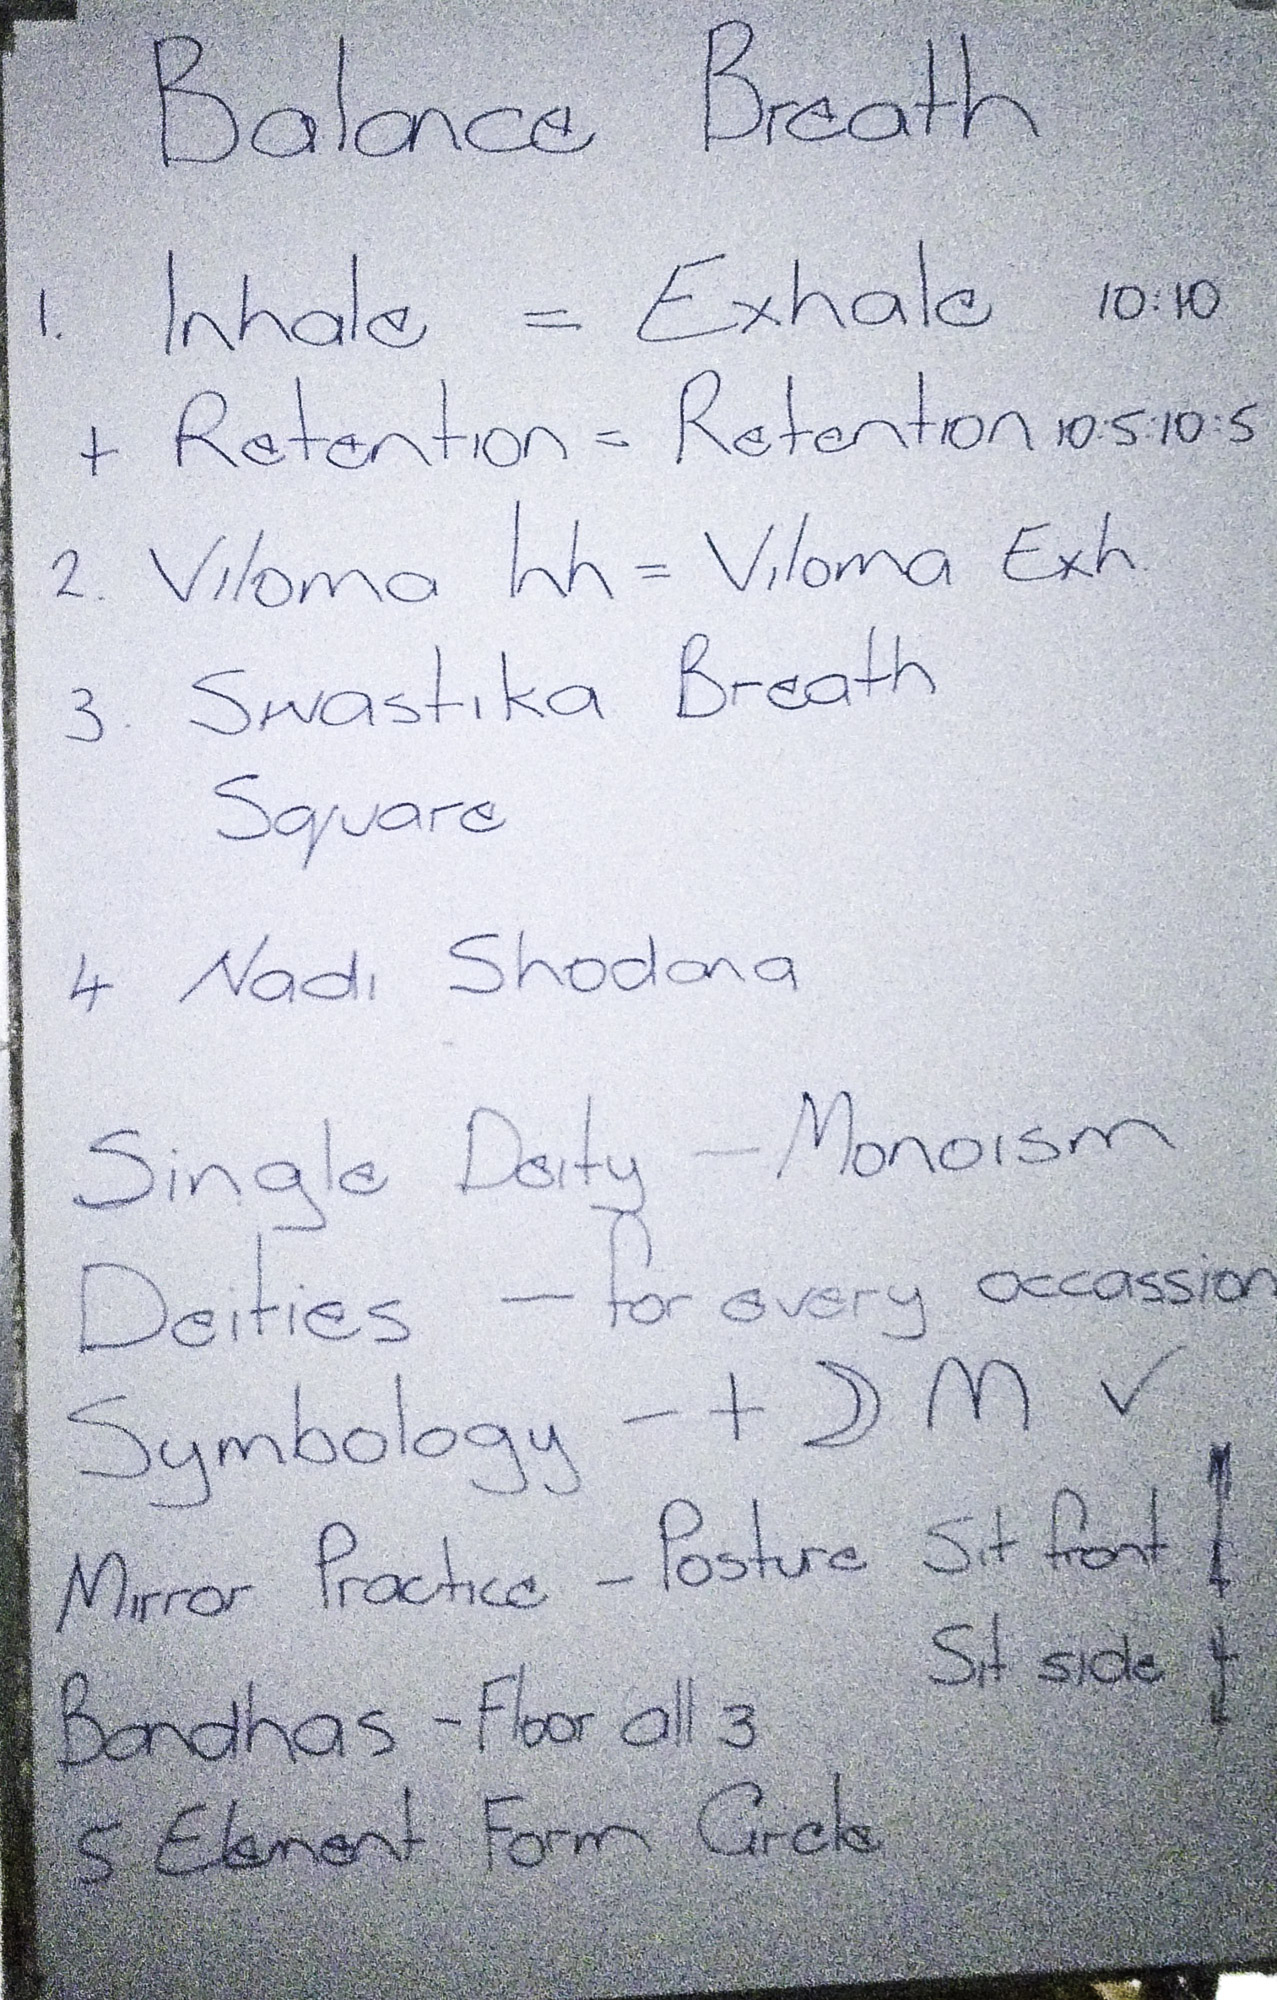 Balance Breath
1. Inhale = Exhale 10:10
+ Retention = Retention 10:5:10:5
2. Viloma Inh = Viloma Exh.
3. Swastika Breath
Square
4 Nadi Shodana
Single Deity - Monoism
Deities - for every occassion
Symbology - + ☽) M ✓
Mirror Practice - Posture Sit front
Sit side
Bandhas - Floor all 3
5 Element Form Circle